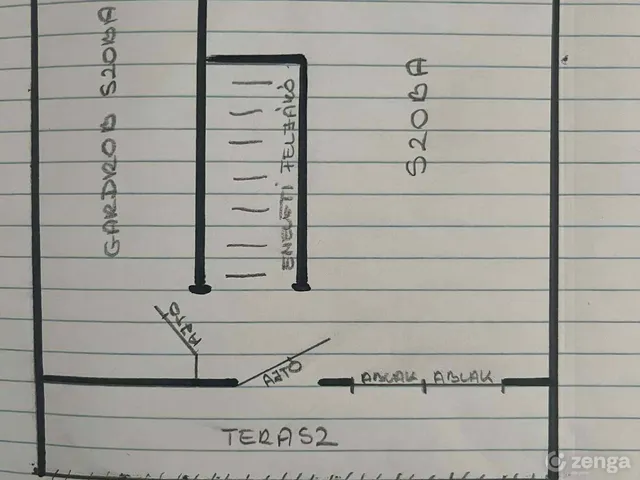 GARDROB SZOBA
EMELETI FELJÁRÓ
SZOBA
AJTÓ
AJTÓ
ABLAK
ABLAK
TERASZ
zenga